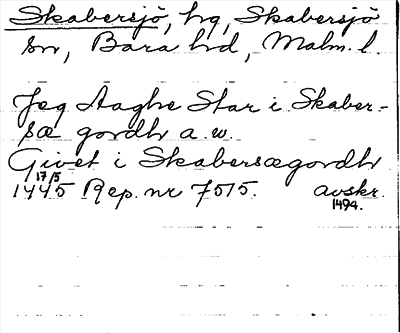 Skabersjö, hg, Skabersjö
sn, Bara hd, Malm. l.
Jeg Aaghe Star i Skaber-
sæ gordh a.w.
Givet i Skabersægordh
17/5
1445 Rep. nr 7515. avskr.
1494.